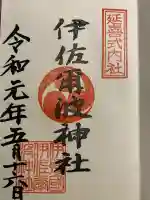 延喜式内社
伊佐爾波神社
令和元年五月十六日